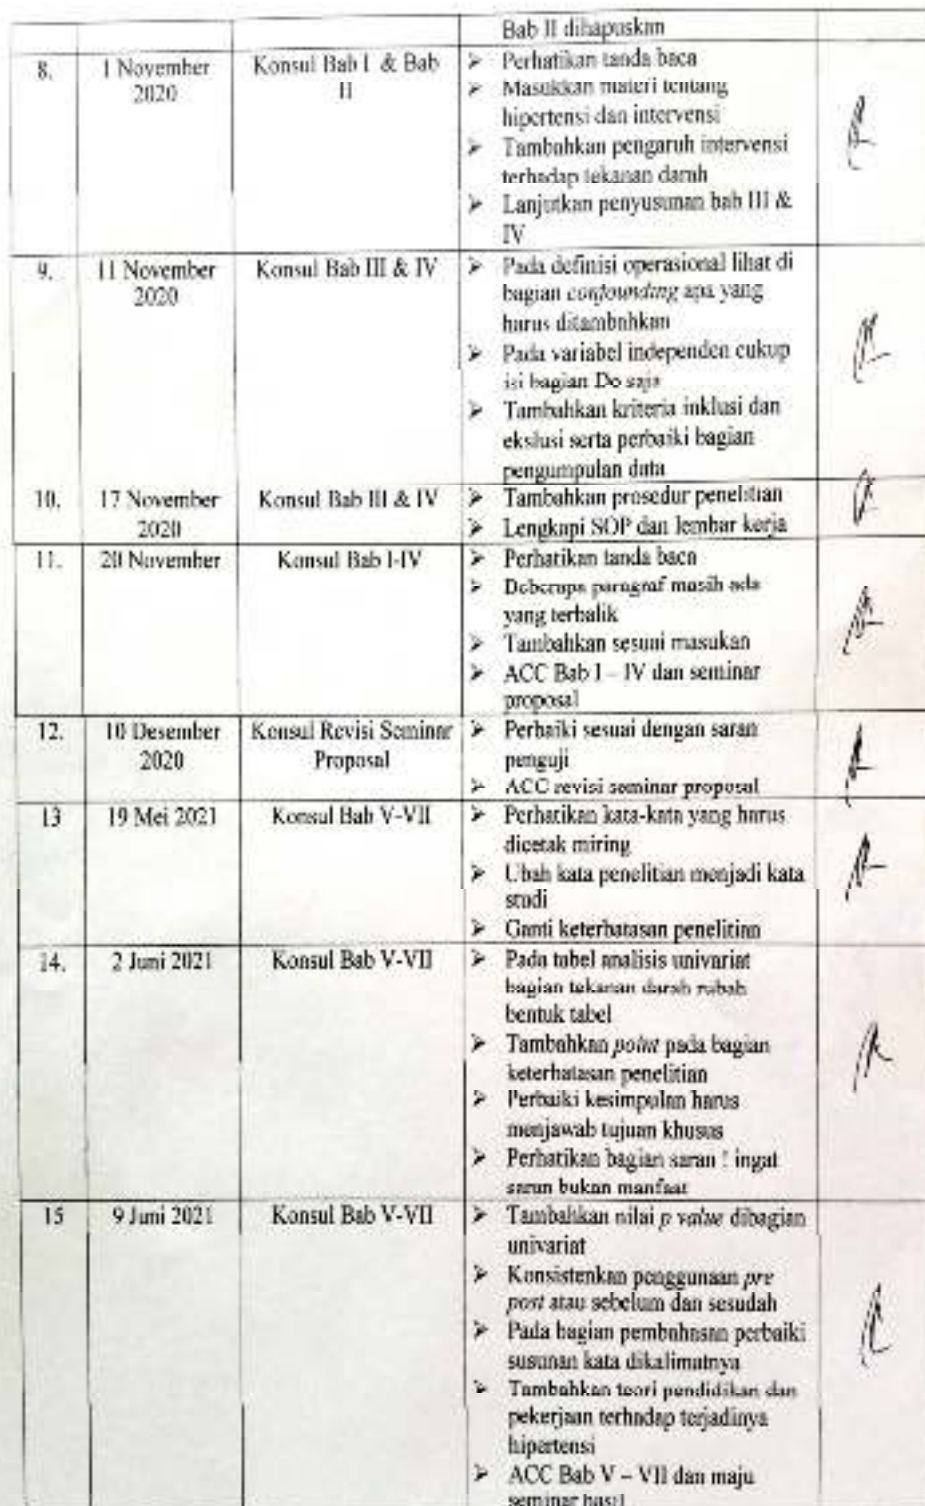 Bab II dihapuskan
8. 1 November Konsul Bab I & Bab ➢ Perhatikan tanda baca
2020 II ➢ Masukkan materi tentang
hipertensi dan intervensi
➢ Tambahkan pengaruh intervensi
terhadap tekanan darah
➢ Lanjutkan penyusunan bab III &
IV
9. 11 November Konsul Bab III & IV ➢ Pada definisi operasional lihat di
2020 bagian confounding apa yang
harus ditambahkan
➢ Pada variabel independen cukup
isi bagian Do saja
➢ Tambahkan kriteria inklusi dan
ekslusi serta perbaiki bagian
pengumpulan data
10. 17 November Konsul Bab III & IV ➢ Tambahkan prosedur penelitian
2020 ➢ Lengkapi SOP dan lembar kerja
11. 20 November Konsul Bab I-IV ➢ Perhatikan tanda baca
➢ Beberapa paragraf masih ada
yang terbalik
➢ Tambahkan sesuai masukan
➢ ACC Bab I – IV dan seminar
proposal
12. 10 Desember Konsul Revisi Seminar ➢ Perbaiki sesuai dengan saran
2020 Proposal penguji
➢ ACC revisi seminar proposal
13 19 Mei 2021 Konsul Bab V-VII ➢ Perhatikan kata-kata yang harus
dicetak miring
➢ Ubah kata penelitian menjadi kata
studi
➢ Ganti keterbatasan penelitian
14. 2 Juni 2021 Konsul Bab V-VII ➢ Pada tabel analisis univariat
bagian tekanan darah rubah
bentuk tabel
➢ Tambahkan point pada bagian
keterbatasan penelitian
➢ Perbaiki kesimpulan harus
menjawab tujuan khusus
➢ Perhatikan bagian saran ! ingat
saran bukan manfaat
15 9 Juni 2021 Konsul Bab V-VII ➢ Tambahkan nilai p value dibagian
univariat
➢ Konsistenkan penggunaan pre
post atau sebelum dan sesudah
➢ Pada bagian pembahasan perbaiki
susunan kata dikalimatnya
➢ Tambahkan teori pendidikan dan
pekerjaan terhadap terjadinya
hipertensi
➢ ACC Bab V – VII dan maju
seminar hasil